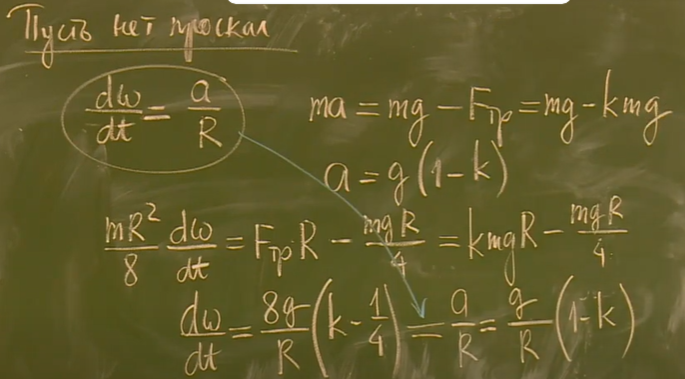 Пусть нет проскал
dω/dt = a/R
ma = mg − Fтр = mg − kmg
a = g(1 − k)
mR²/8 dω/dt = FтрR − mgR/4 = kmgR − mgR/4
dω/dt = 8g/R (k − 1/4) = a/R = g/R (1 − k)